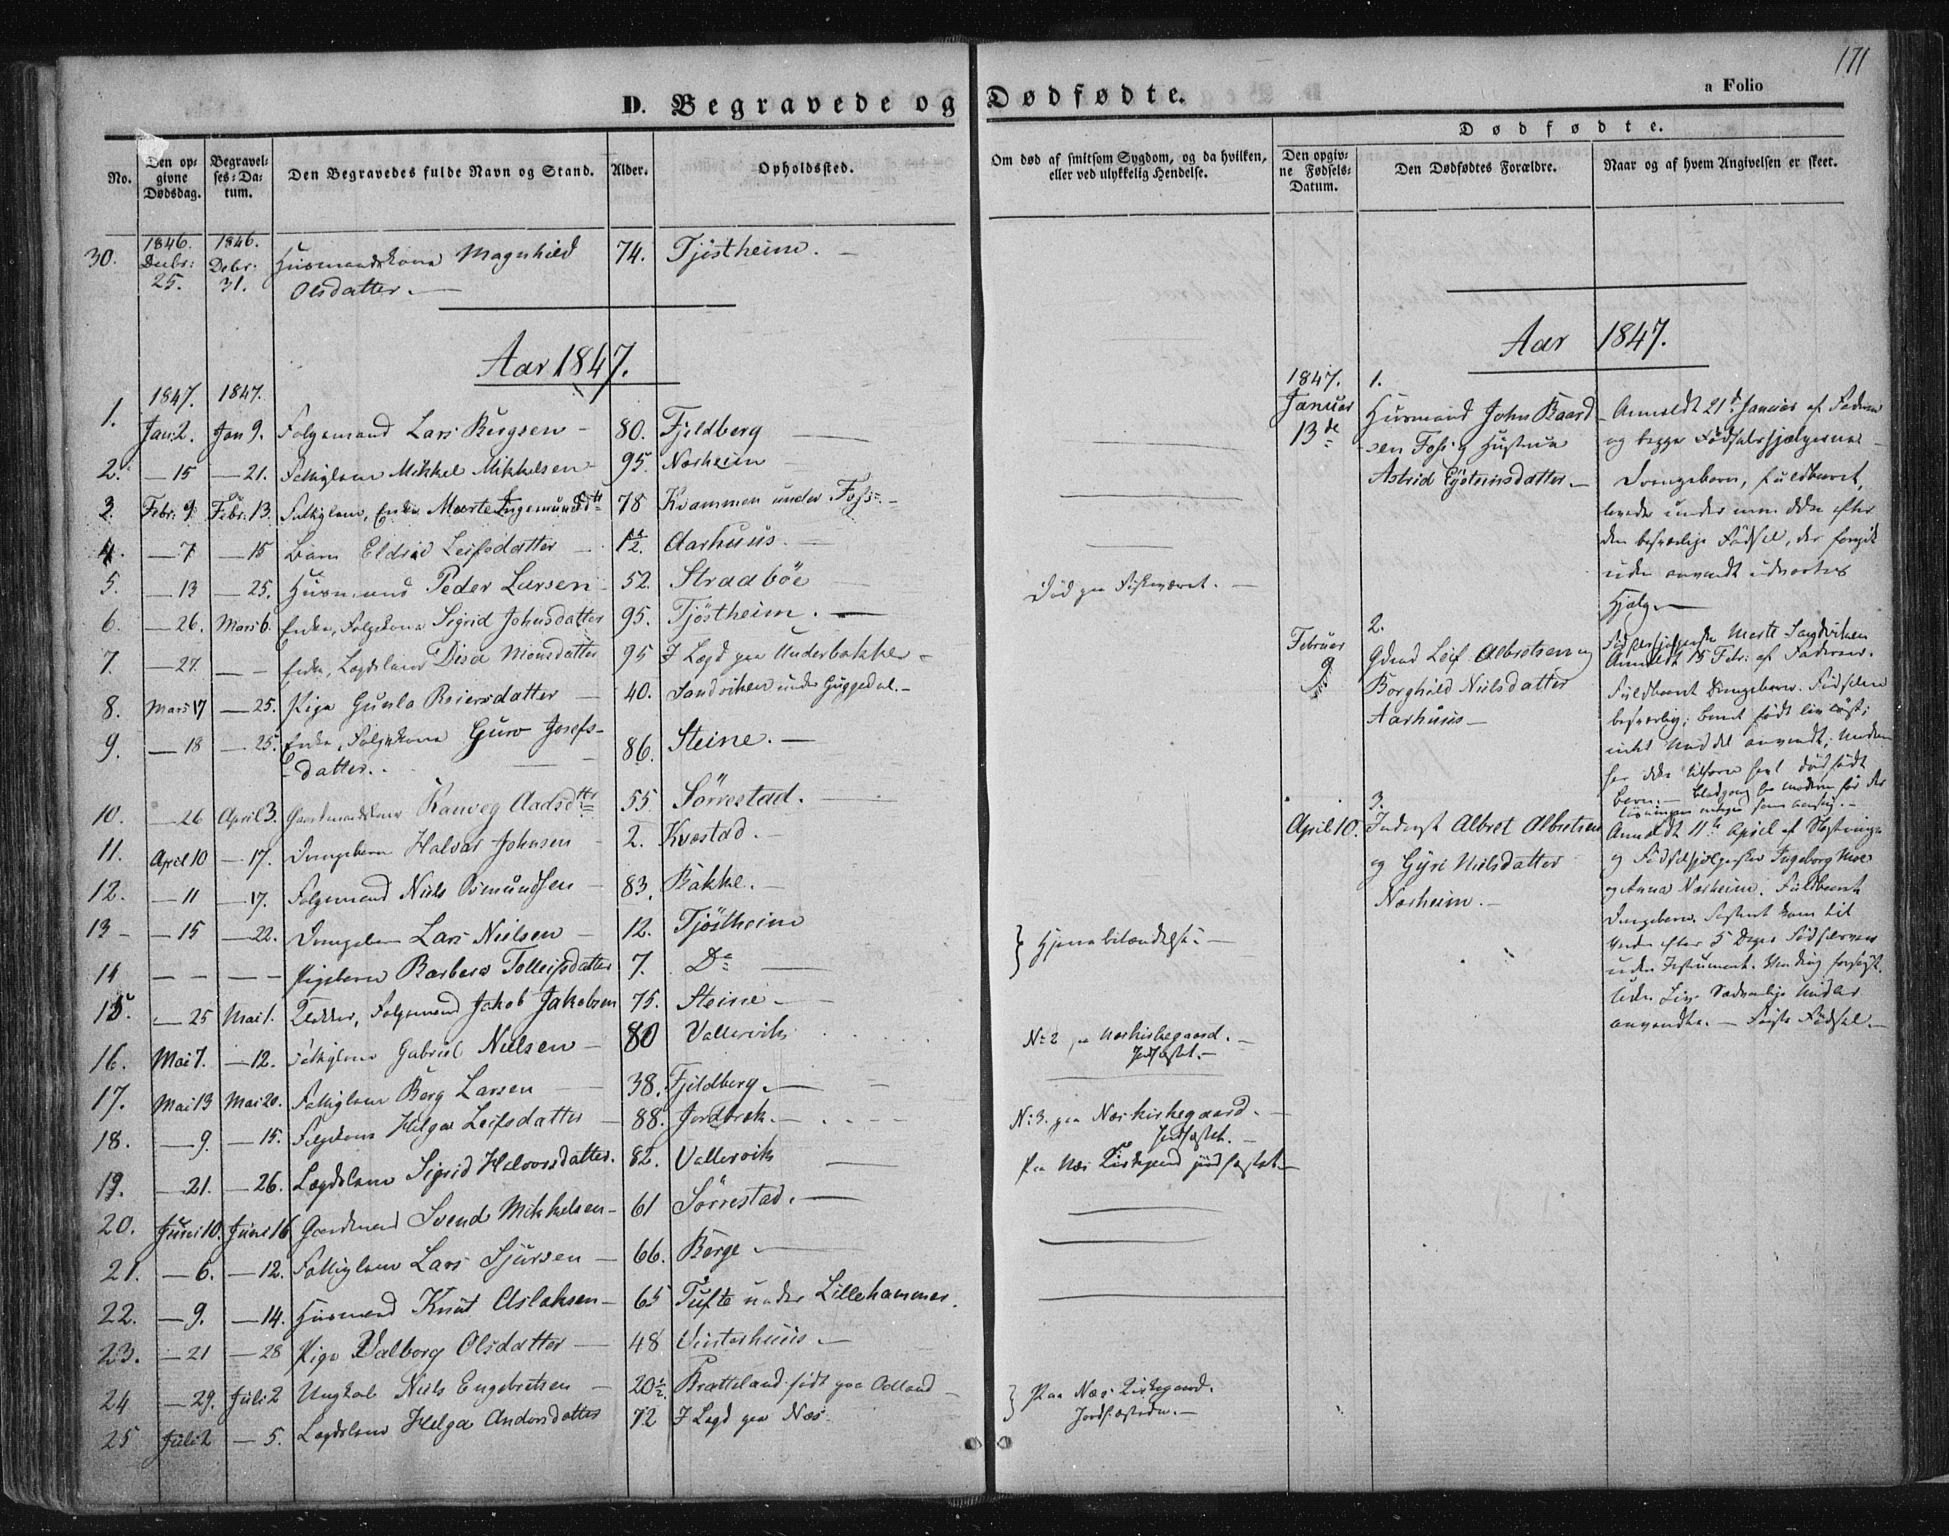 171
D. Begravede og Dødfødte.
a Folio
No.
Den opgivne Dødsdag.
Begravelses-Datum.
Den Begravedes fulde Navn og Stand.
Alder.
Opholdssted.
Om død af smitsom Sygdom, og da hvilken, eller ved ulykkelig Hendelse.
Dødfødte.
Den opgivne Fødsels-Datum.
Den Dødfødtes Forældre.
Naar og af hvem Angivelsen er skeet.
30. 1846. Decbr: 25. 1846. Decbr: 31. Huusmandskone Magnhild Olsdatter. — 74. Tjöstheim. —
Aar 1847.
1847. 1847.
1. Jan: 2. Jan 9. Folgemand Lars Bergsen — 80. Fjeldberg —
2. — 15 — 21. Fattiglem Mikkel Mikkelsen — 95. Næsheim —
3. Febr: 9 Febr: 13. Fattiglem, Enke Marte Ingemundsdtr 78 Kvammen under Foss —
4. — 7 — 15 Barn Eldrid Leifsdatter — 1½. Aarhuus. —
5. — 13 — 25. Huusmand Peder Larsen — 52. Stradböe — Död paa Fiskeværet. —
6. — 26. Mars 6. Enke, Folgekone Sigrid Johnsdatter 95. Tjöstheim. —
7. — 27. — — Enke, Lægdslem Disa Monsdatter 95 I Lægd paa Underbakke —
8. Mars 17 — 25. Pige Gunla Reiersdatter — 40. Sandviken under Guggedal. —
9. — 18 — 25. Enke, Folgekone Guro Josefsdatter. 86. Steine. —
10. — 26 April 3. Gaardmandskone Ranveg Aadsdtr 55 Sörrestad. —
11. April 10 — 17. Drengebarn Halvar Johnsen — 2. Kvæstad. —
12. — 11 — 17. Folgemand Niels Osmundsen — 83. Bakke. —
13 — — 15 — 22. Drengebarn Lars Nielsen — 12. Tjöstheim
14 — — — Pigebarn Barbera Tolleifsdatter 7. Do —
} Hjernebetændelse. —
15. — 25 Mai 1. Folgemand Jakob Jakobsen 75. Steine —
16. Mai 7. — 12. Fattiglem Gabriel Nielsen — 80 Vallervik No 2 paa Næskirkegaard. — Jordfæstet. —
17. Mai 13 Mai 20. Fattiglem Berg Larsen — 38. Fjeldberg. —
18. — 9. — 15. Folgekone Helga Leifsdatter — 88. Jordbrek. — No 3. paa Næs kirkegaard. — Jordfæstet. —
19. — 21. — 26. Lægdslem Sigrid Halvorsdatter. 82. Vallervik — Paa Næs Kirkegaard jordfæstet —
20. Juni 10. Juni 16 Gaardmand Svend Mikkelsen — 61 Sörrestad. —
21. — 6. — 12. Fattiglem Lars Sjursen — 66. Berge —
22. — 9. — 14. Huusmand Knut Aslaksen — 65 Tufte under Lillehammer.
23. — 21 — 28 Pige Valborg Olsdatter — 48 Vinterhuus. —
24 — 29. Juli 2 Ungkal Niels Engebretsen — 20½. Bratteland födt paa Odland —
25 Juli 2 — 5. Lægdslem Helga Andersdatter 72 I Lægd paa Næs.
} Paa Næs Kirkegaard. Jordfæstede. —
Aar 1847.
1847. Januar 13de
1.
Huusmand John Baardsen Foss og Hustrue Astrid Eysteinsdatter. —
Anmeldt 21de Januar af Faderen
og begge Födselshjælperne —
Drengebarn, fuldbaaret,
levede under men ikke efter
den besværlige Födsel, der foregik
uden anvendt udvortes
Hjælp —
Födselshjelperske Marte Sandviken
Februar 9
2.
Gdmd Leif Albretsen og
Borghild Nielsdatter
Aarhuus —
Anmeldt 15 Febr: af Faderen.
Fuldbaaret Drengebarn. Födselen
besværlig; Barnet födt livlöst;
intet Middel anvendt; Moderen
har ikke tilforn havt dödfödt
Barn. —
April 10.
3.
Inderst Albret Albretsen
og Gyri Nielsdatter
Næsheim. —
Anmeldt 11te April af
og Födselshjelperske Ingeborg Moe
og Anna Næsheim. Fuldbaaret
Drengebarn. Fosteret kom til
Verden efter 5 Dages Födselsveer
uden Instrument. Vending forsögt.
Uden Liv. Sædvanlige Midler
anvendte. — Förste Födsel. —